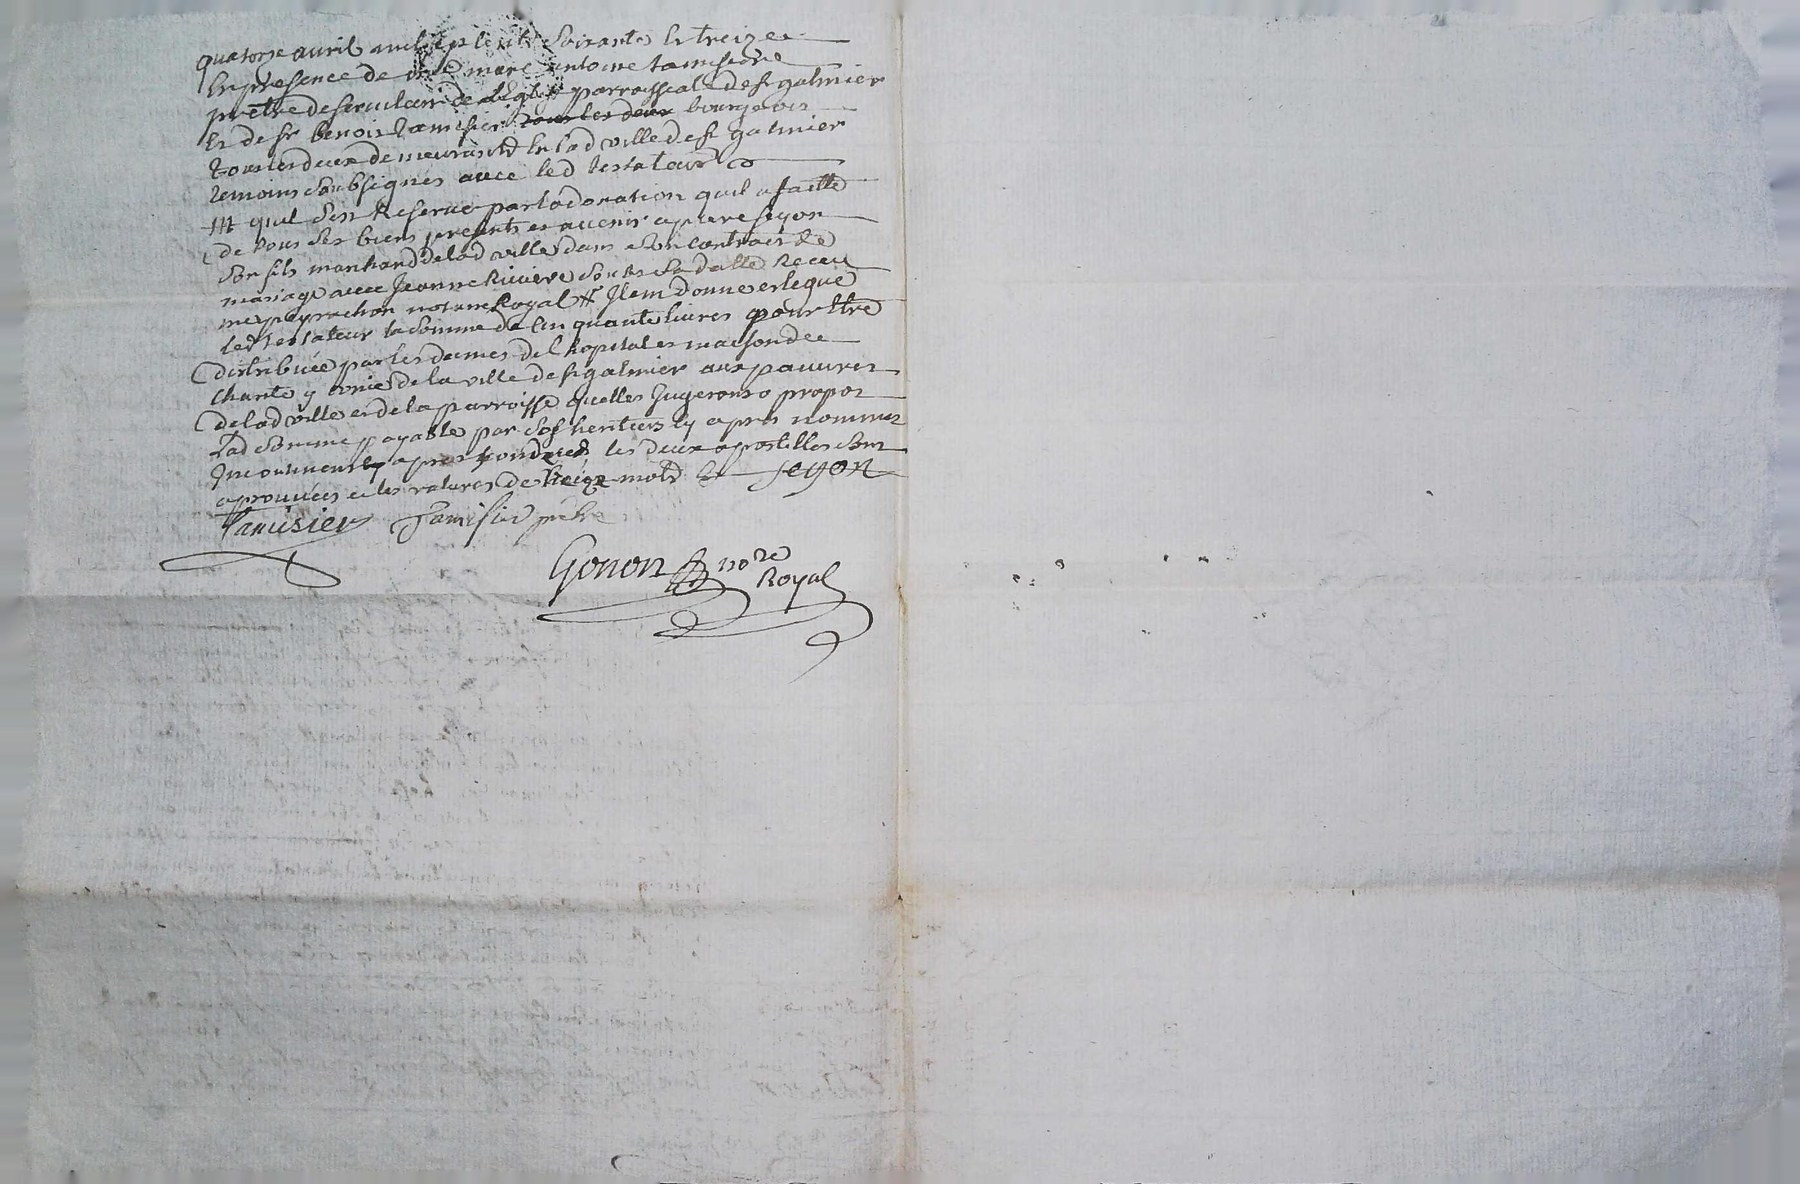 quatorze avril mil sept cent soixante et treize
En presence de mre marc antoine tamisier
pretre deserviteur de L'Eglise parroissiale de st galmier
Et de sr benoit tamisier tous les deux bourgeois
tous les deux demeurants En lad ville de st galmier
temoins soubsignés avec led testateur
qu'il s'en Reserve par la donation quil a faitte
de tous ses biens presents et avenir a pierre seyon
son fils marchand de lad ville dans son contrait de
mariage avec Jeanne Riviere sous sa datte Receu
me peyrachon notaire Royal # Item Donne et legue
led testateur la somme de Cinquante livres pour Etre
Distribuée par les dames de l'hopital et maison de
charité de la ville de st galmier aux pauvres
de lad ville et de la parroisse quelles Jugeront a propos
Lad somme payable par ses heritiers cy apres nommes
Incontinent apres son deces les deux apostilles sont
aprouvées et les ratures de treize mots seyon
Tamisier Tamisier pretre
Gonon nore
Royal